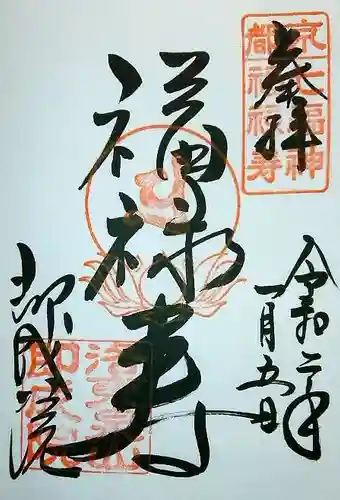 奉拝
京都
七福神
福禄寿
令和二年
一月五日
福禄寿
即成院